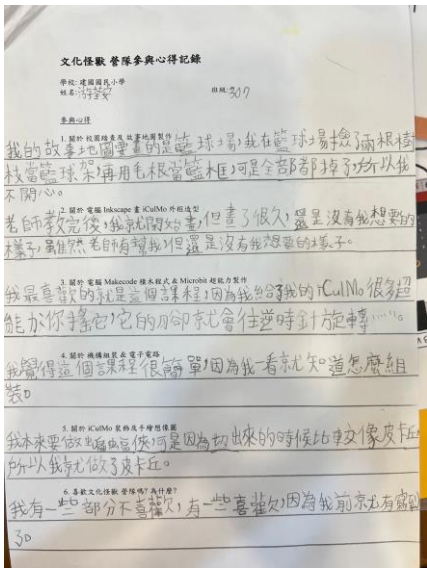 文化怪獸 營隊參與心得記錄
學校: 建國國民小學
姓名: 班級: 307
參與心得
1. 關於 校園踏查及 故事地圖製作
我的故事地圖要畫的是籃球場,我在籃球場撿了兩根樹
枝當籃球架,再用毛根當籃框,可是全部都掉了,所以我
不開心。
2. 關於 電腦 Inkscape 畫 iCulMo 外經造型
老師教完後,我就開始畫,但畫了很久,還是沒有我想要的
樣子,雖然老師有幫我,但還是沒有我想要的樣子。
3. 關於 電腦 Makecode 積木程式 & Microbit 超能力製作
我最喜歡的就是這個課程,因為我給我的iCulMo很多超
能力,你搖它,它的腳就會往逆時針旋轉……。
4. 關於 機構組裝 & 電子電路
我覺得這個課程很簡單,因為我一看就知道怎麼組
裝。
5. 關於 iCulMo 裝飾及手繪想像圖
我本來要做出蝙蝠俠,可是因為切出來的時候比較像皮卡丘
所以我就做了皮卡丘。
6. 喜歡文化怪獸 營隊嗎? 為什麼?
我有一些部分不喜歡,有一些喜歡,因為我前
了。